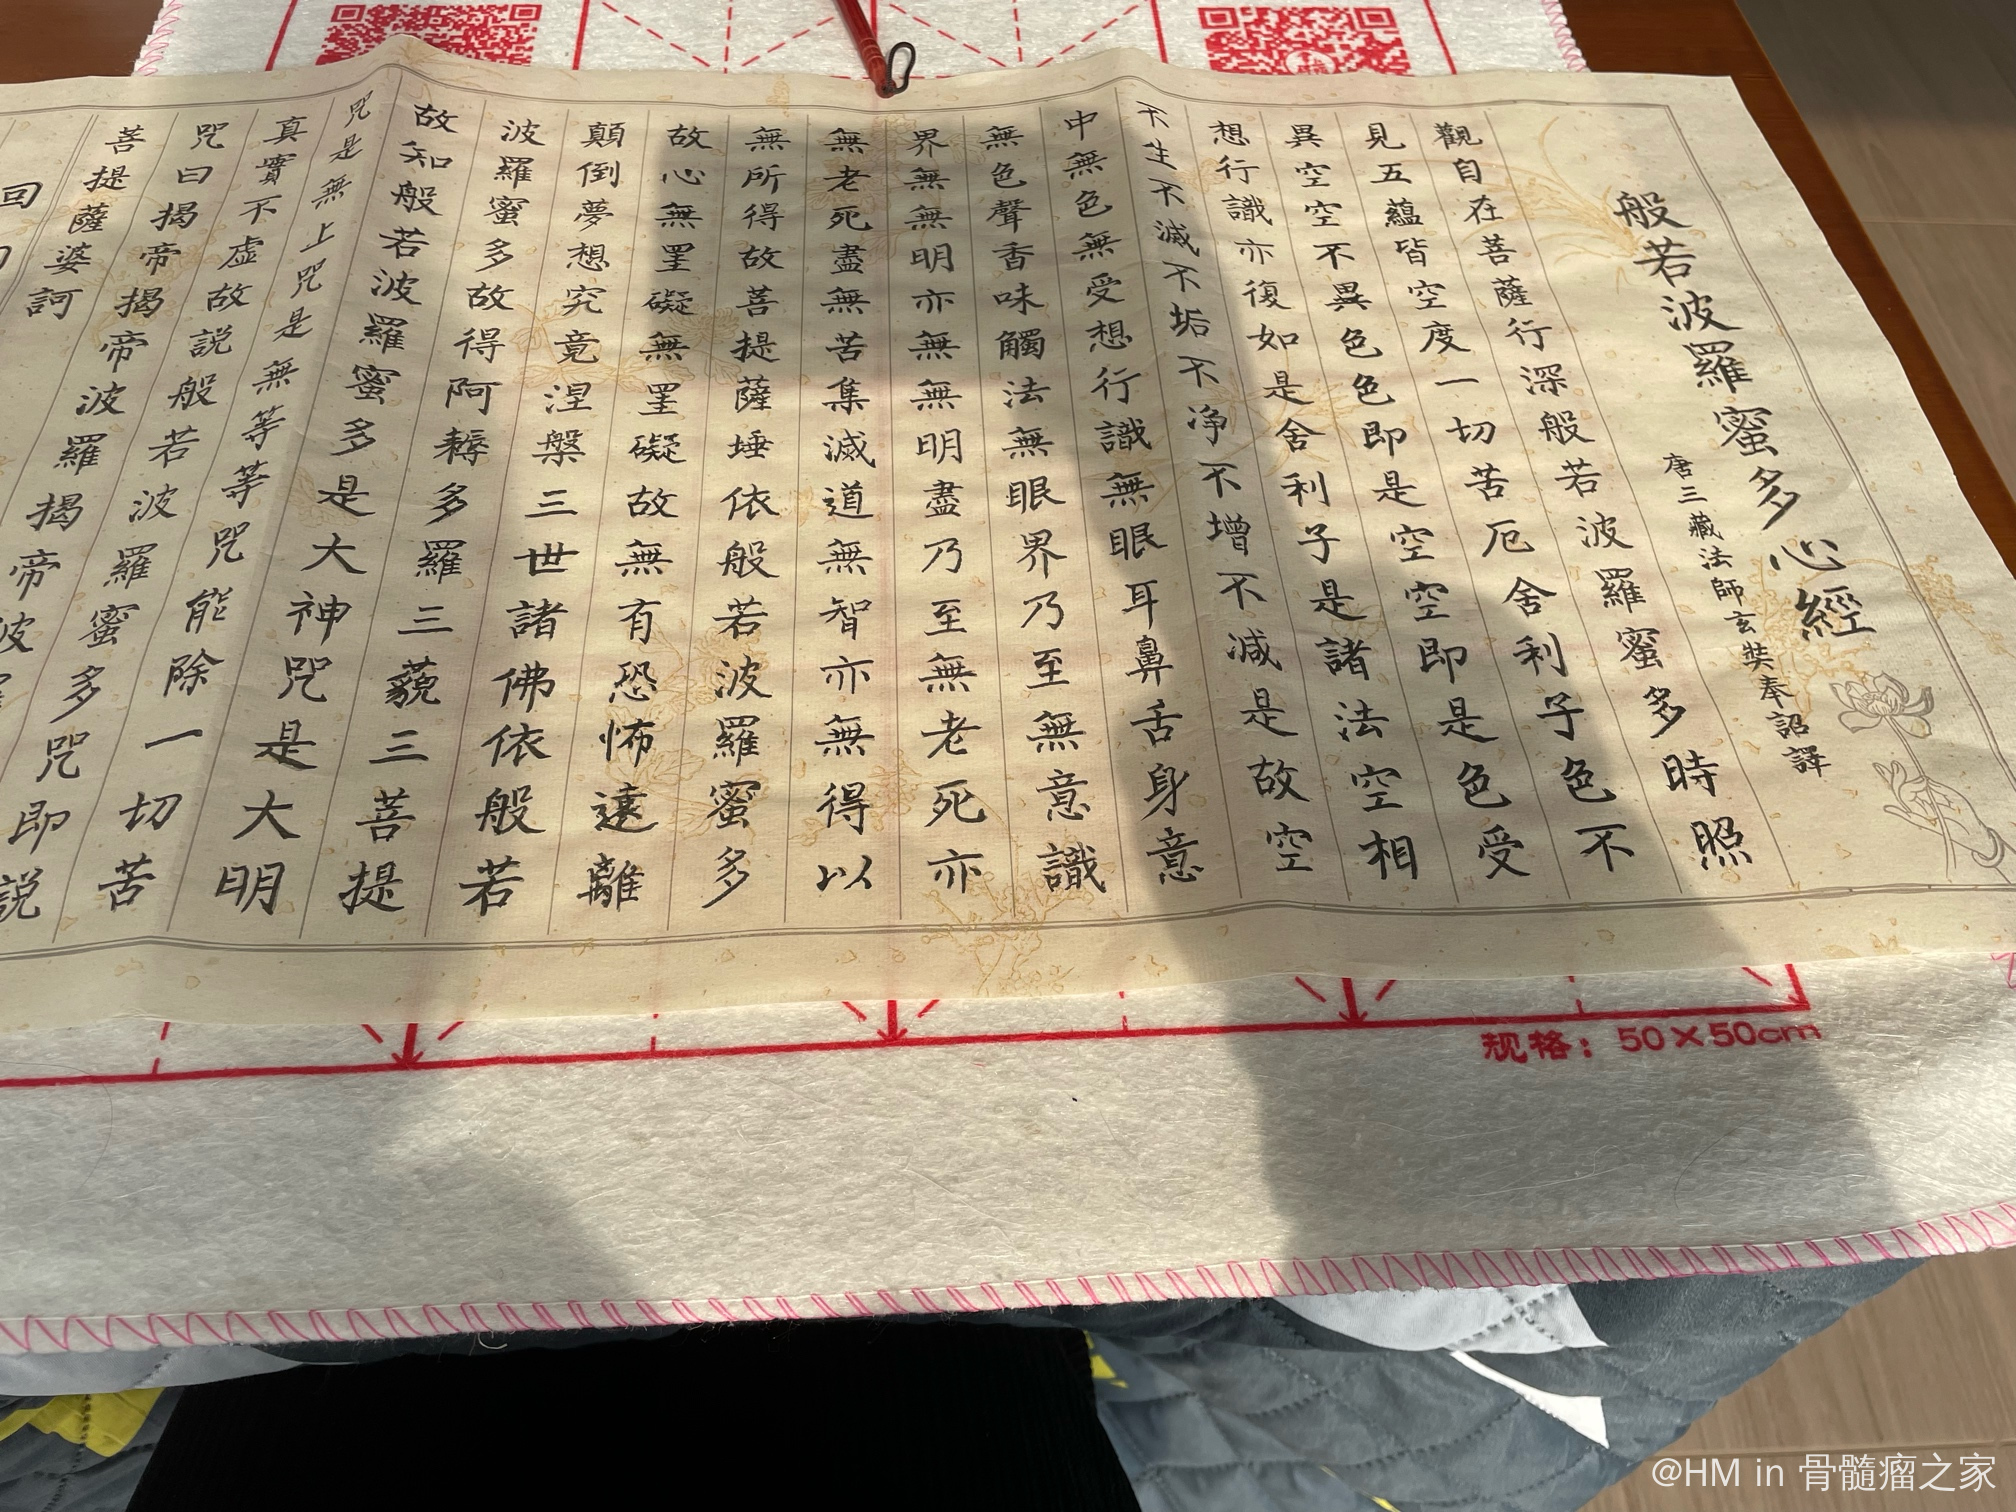 般若波羅蜜多心經
唐三藏法師玄奘奉詔譯
觀自在菩薩行深般若波羅蜜多時照
見五蘊皆空度一切苦厄舍利子色不
異空空不異色色即是空空即是色受
想行識亦復如是舍利子是諸法空相
不生不滅不垢不净不增不减是故空
中無色無受想行識無眼耳鼻舌身意
無色聲香味觸法無眼界乃至無意識
界無無明亦無無明盡乃至無老死亦
無老死盡無苦集滅道無智亦無得以
無所得故菩提薩埵依般若波羅蜜多
故心無罣礙無罣礙故無有恐怖遠離
顛倒夢想究竟涅槃三世諸佛依般若
波羅蜜多故得阿耨多羅三藐三菩提
故知般若波羅蜜多是大神咒是大明
咒是無上咒是無等等咒能除一切苦
真實不虛故説般若波羅蜜多咒即説
咒曰揭帝揭帝波羅揭帝波
菩提薩婆訶
回
规格：50×50cm
@HM in 骨髓瘤之家